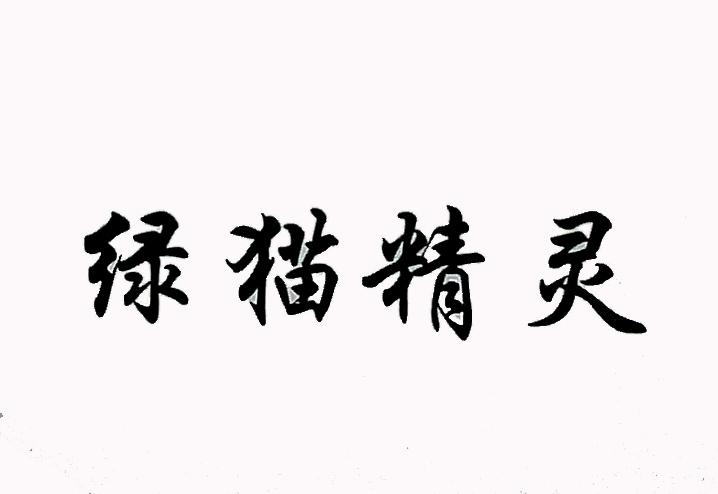 绿猫精灵